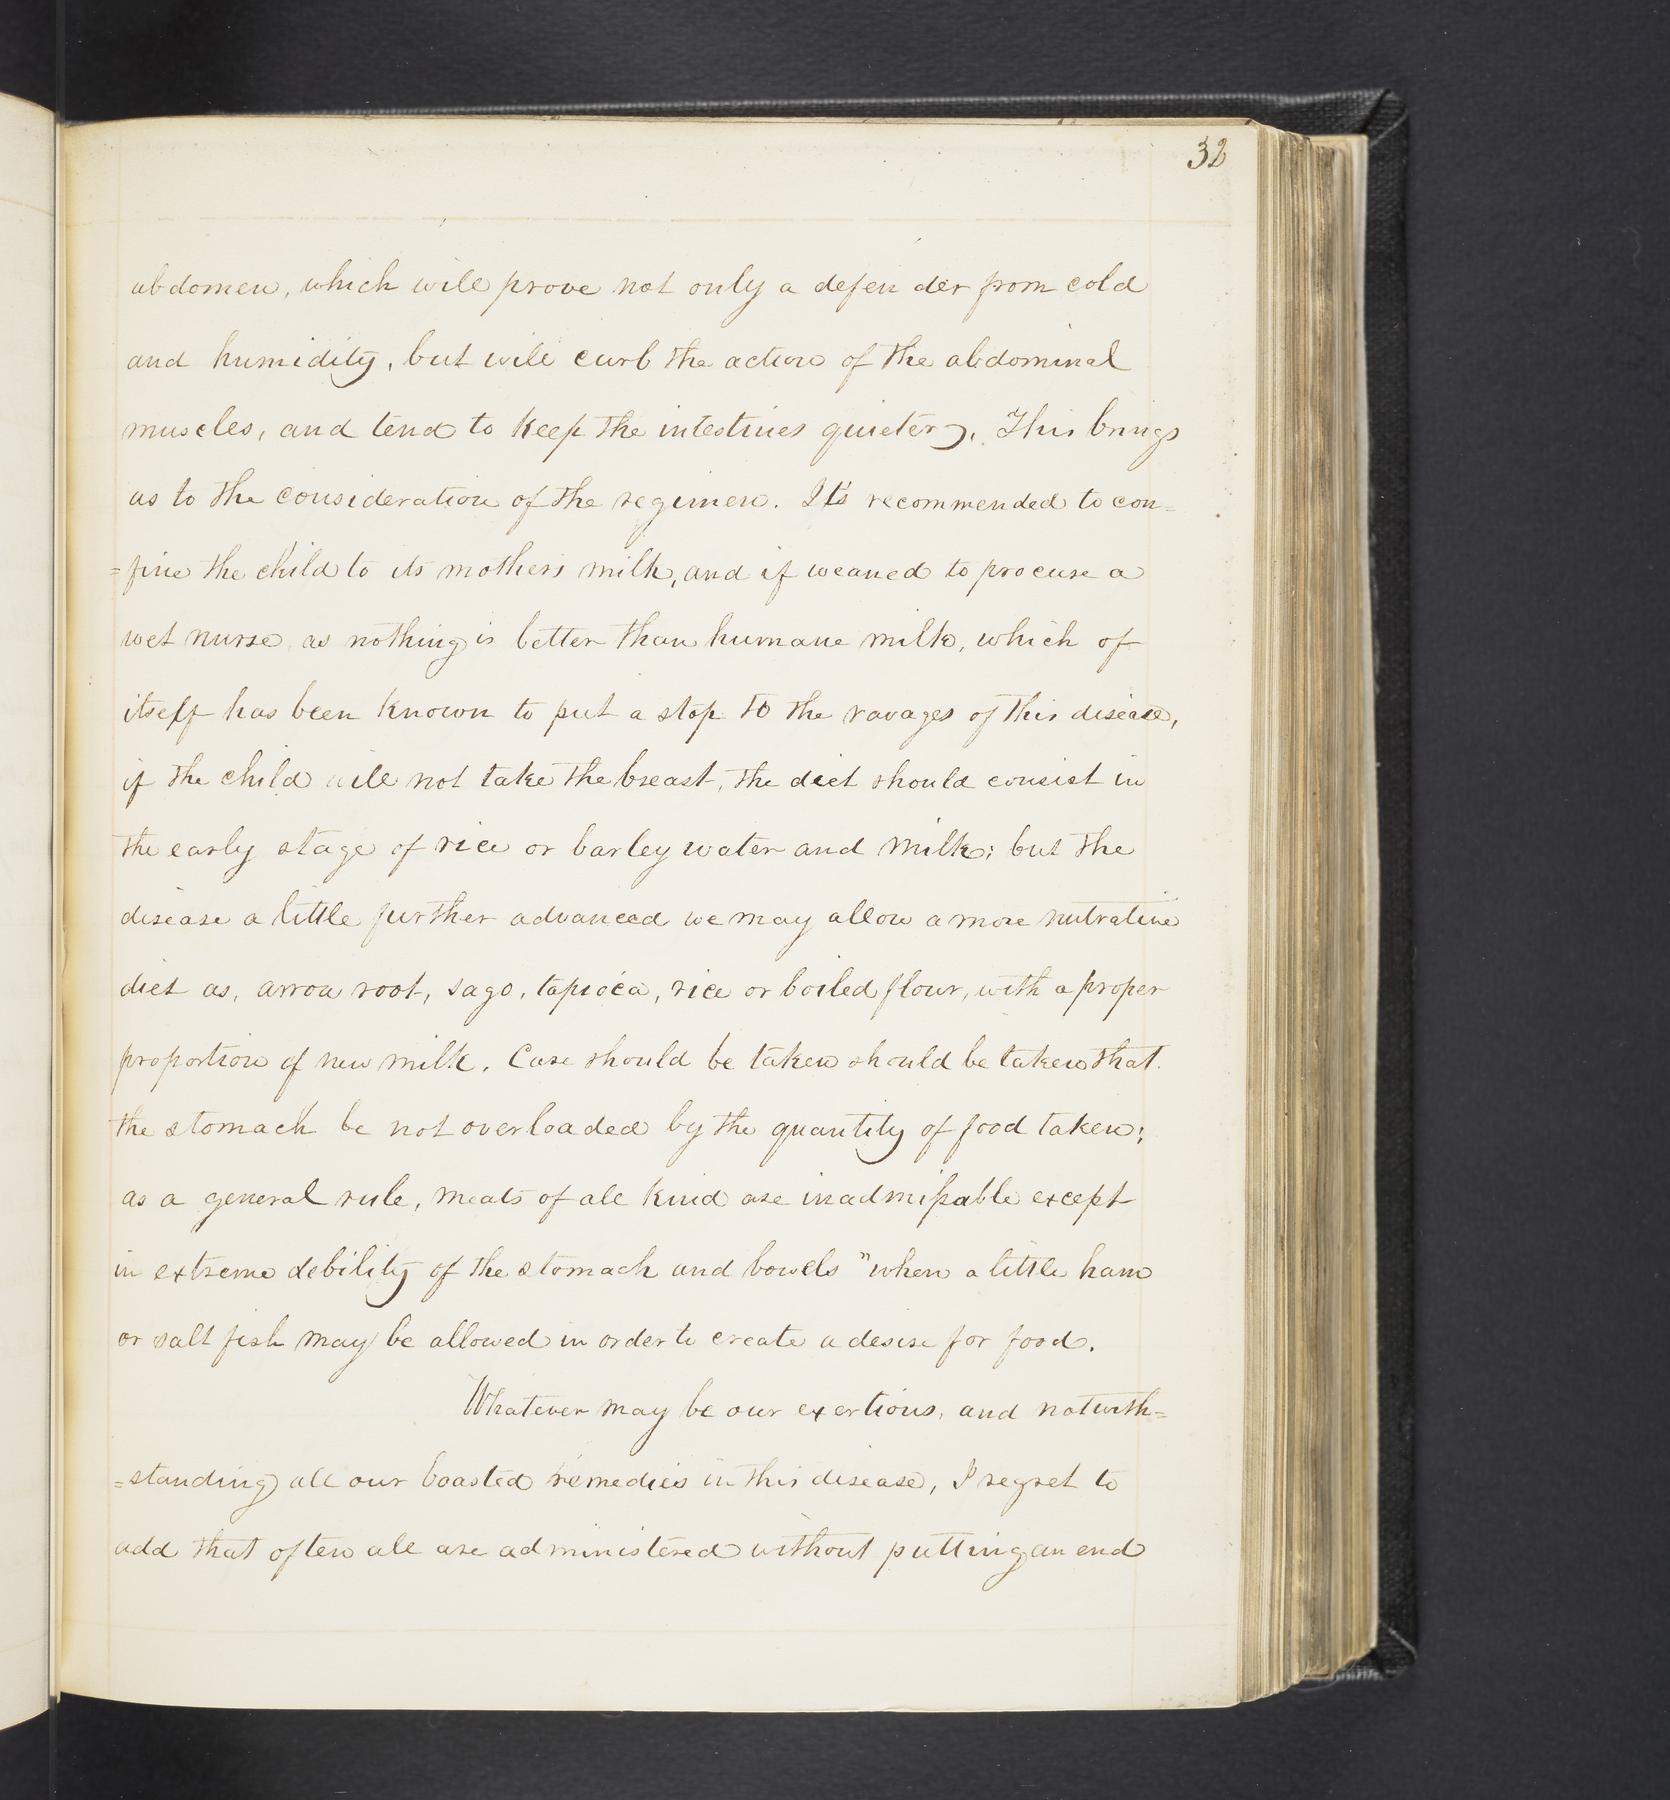 32
abdomen, which will prove not only a defender from cold
and humidity, but will curb the action of the abdominal
muscles, and tend to keep the intestines quieter. This brings
us to the consideration of the regimen. It's recommended to con=
=fine the child to its mothers milk, and if weaned to procure a
wet nurse as nothing is better than humane milk, which of
itself has been known to put a stop to the ravages of this disease,
if the child will not take the breast, the diet should consist in
the early stage of rice or barley water and milk; but the
disease a little further advanced we may allow a more nutrative
diet as, arrow root, sago, tapioca, rice or boiled flour, with a proper
proportion of new milk. Care should be taken should be taken that
the stomach be not overloaded by the quantity of food taken;
as a general rule, meats of all kind are inadmissable except
in extreme debility of the stomach and bowels "when a little ham
or salt fish may be allowed in order to create a desire for food.
Whatever may be our exertions, and notwith=
=standing all our boasted remedies in this disease, I regret to
add that often all are administered without putting an end